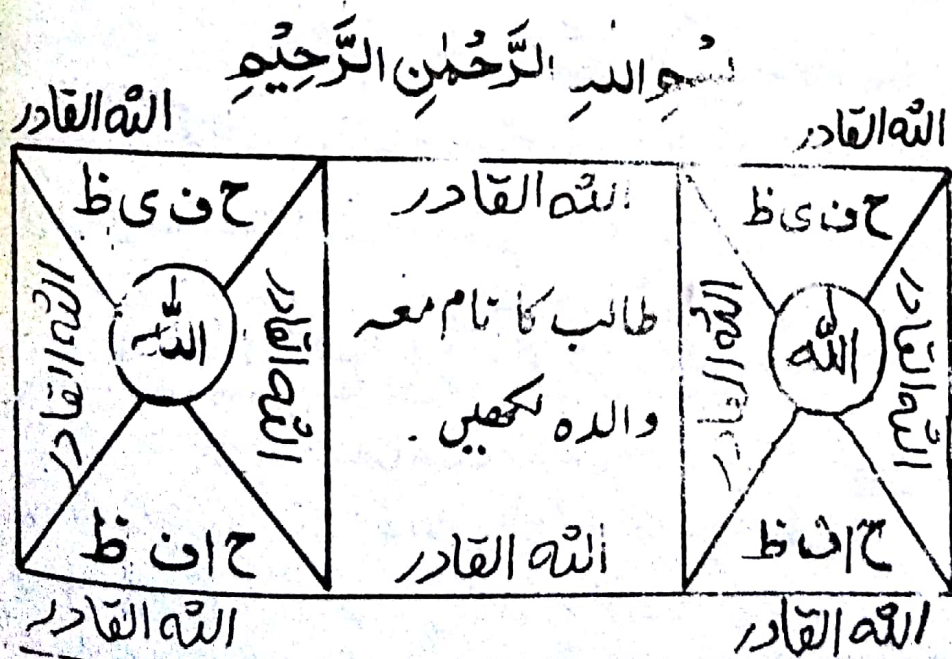 بسم اللہ الرَّحْمٰنِ الرَّحِیْمِ
اللہ القادر
اللہ القادر
ح ف ی ظ
اللہ القادر
ح ف ی ظ
اللہ القادر
اللہ
اللہ القادر
طالب کا نام معہ
والدہ لکھیں۔
اللہ القادر
اللہ
اللہ القادر
ح ا ف ظ
اللہ القادر
ح ا ف ظ
اللہ القادر
اللہ القادر